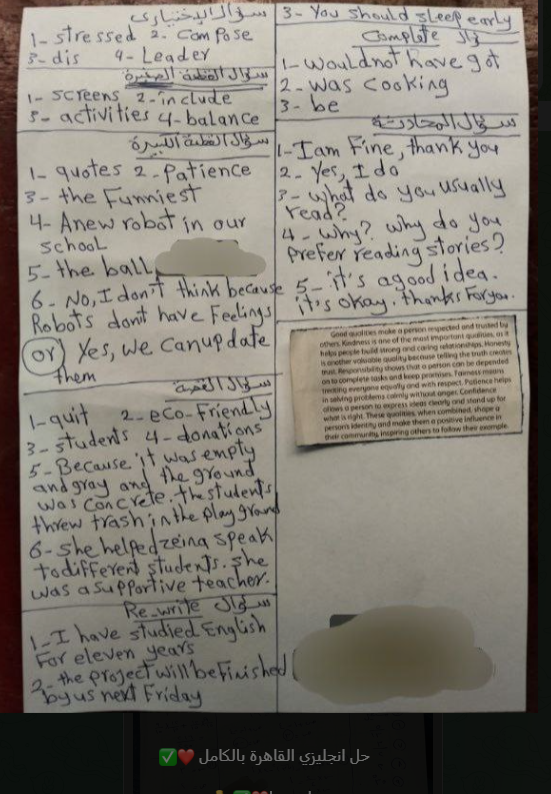 سؤال الاختيارى
1- stressed 2- Compose
3- dis 4- Leader
سؤال القطعة الصغيرة
1- screens 2- include
3- activities 4- balance
سؤال القطعة الكبيرة
1- quotes 2- Patience
3- the Funniest
4- A new robot in our
school
5- the ball
6- No, I don't think because
Robots don't have Feelings
(or) Yes, we can update
them
سؤال القصة
1- quit 2- eco-Friendly
3- students 4- donations
5- Because it was empty
and gray and the ground
was concrete. the students
threw trash in the play ground
6- she helped zeina speak
to different students. she
was a supportive teacher.
Re-write سؤال
1- I have studied English
For eleven years
2- the project will be Finished
by us next Friday
3- You should sleep early
Complete سؤال
1- would not have got
2- was cooking
3- be
سؤال المحادثة
1- I am Fine, thank you
2- Yes, I do
3- what do you usually
read?
4- why? why do you
prefer reading stories?
5- it's a good idea.
it's okay. thanks For you.
Good qualities make a person respected and trusted by
others. Kindness is one of the most important qualities, as it
helps people build strong and caring relationships. Honesty
is another valuable quality because telling the truth creates
trust. Responsibility shows that a person can be depended
on to complete tasks and keep promises. Fairness means
treating everyone equally and with respect. Patience helps
in solving problems calmly without anger. Confidence
allows a person to express ideas clearly and stand up for
what is right. These qualities, when combined, shape a
person's identity and make them a positive influence in
their community, inspiring others to follow their example.
حل انجليزي القاهرة بالكامل ❤️✅